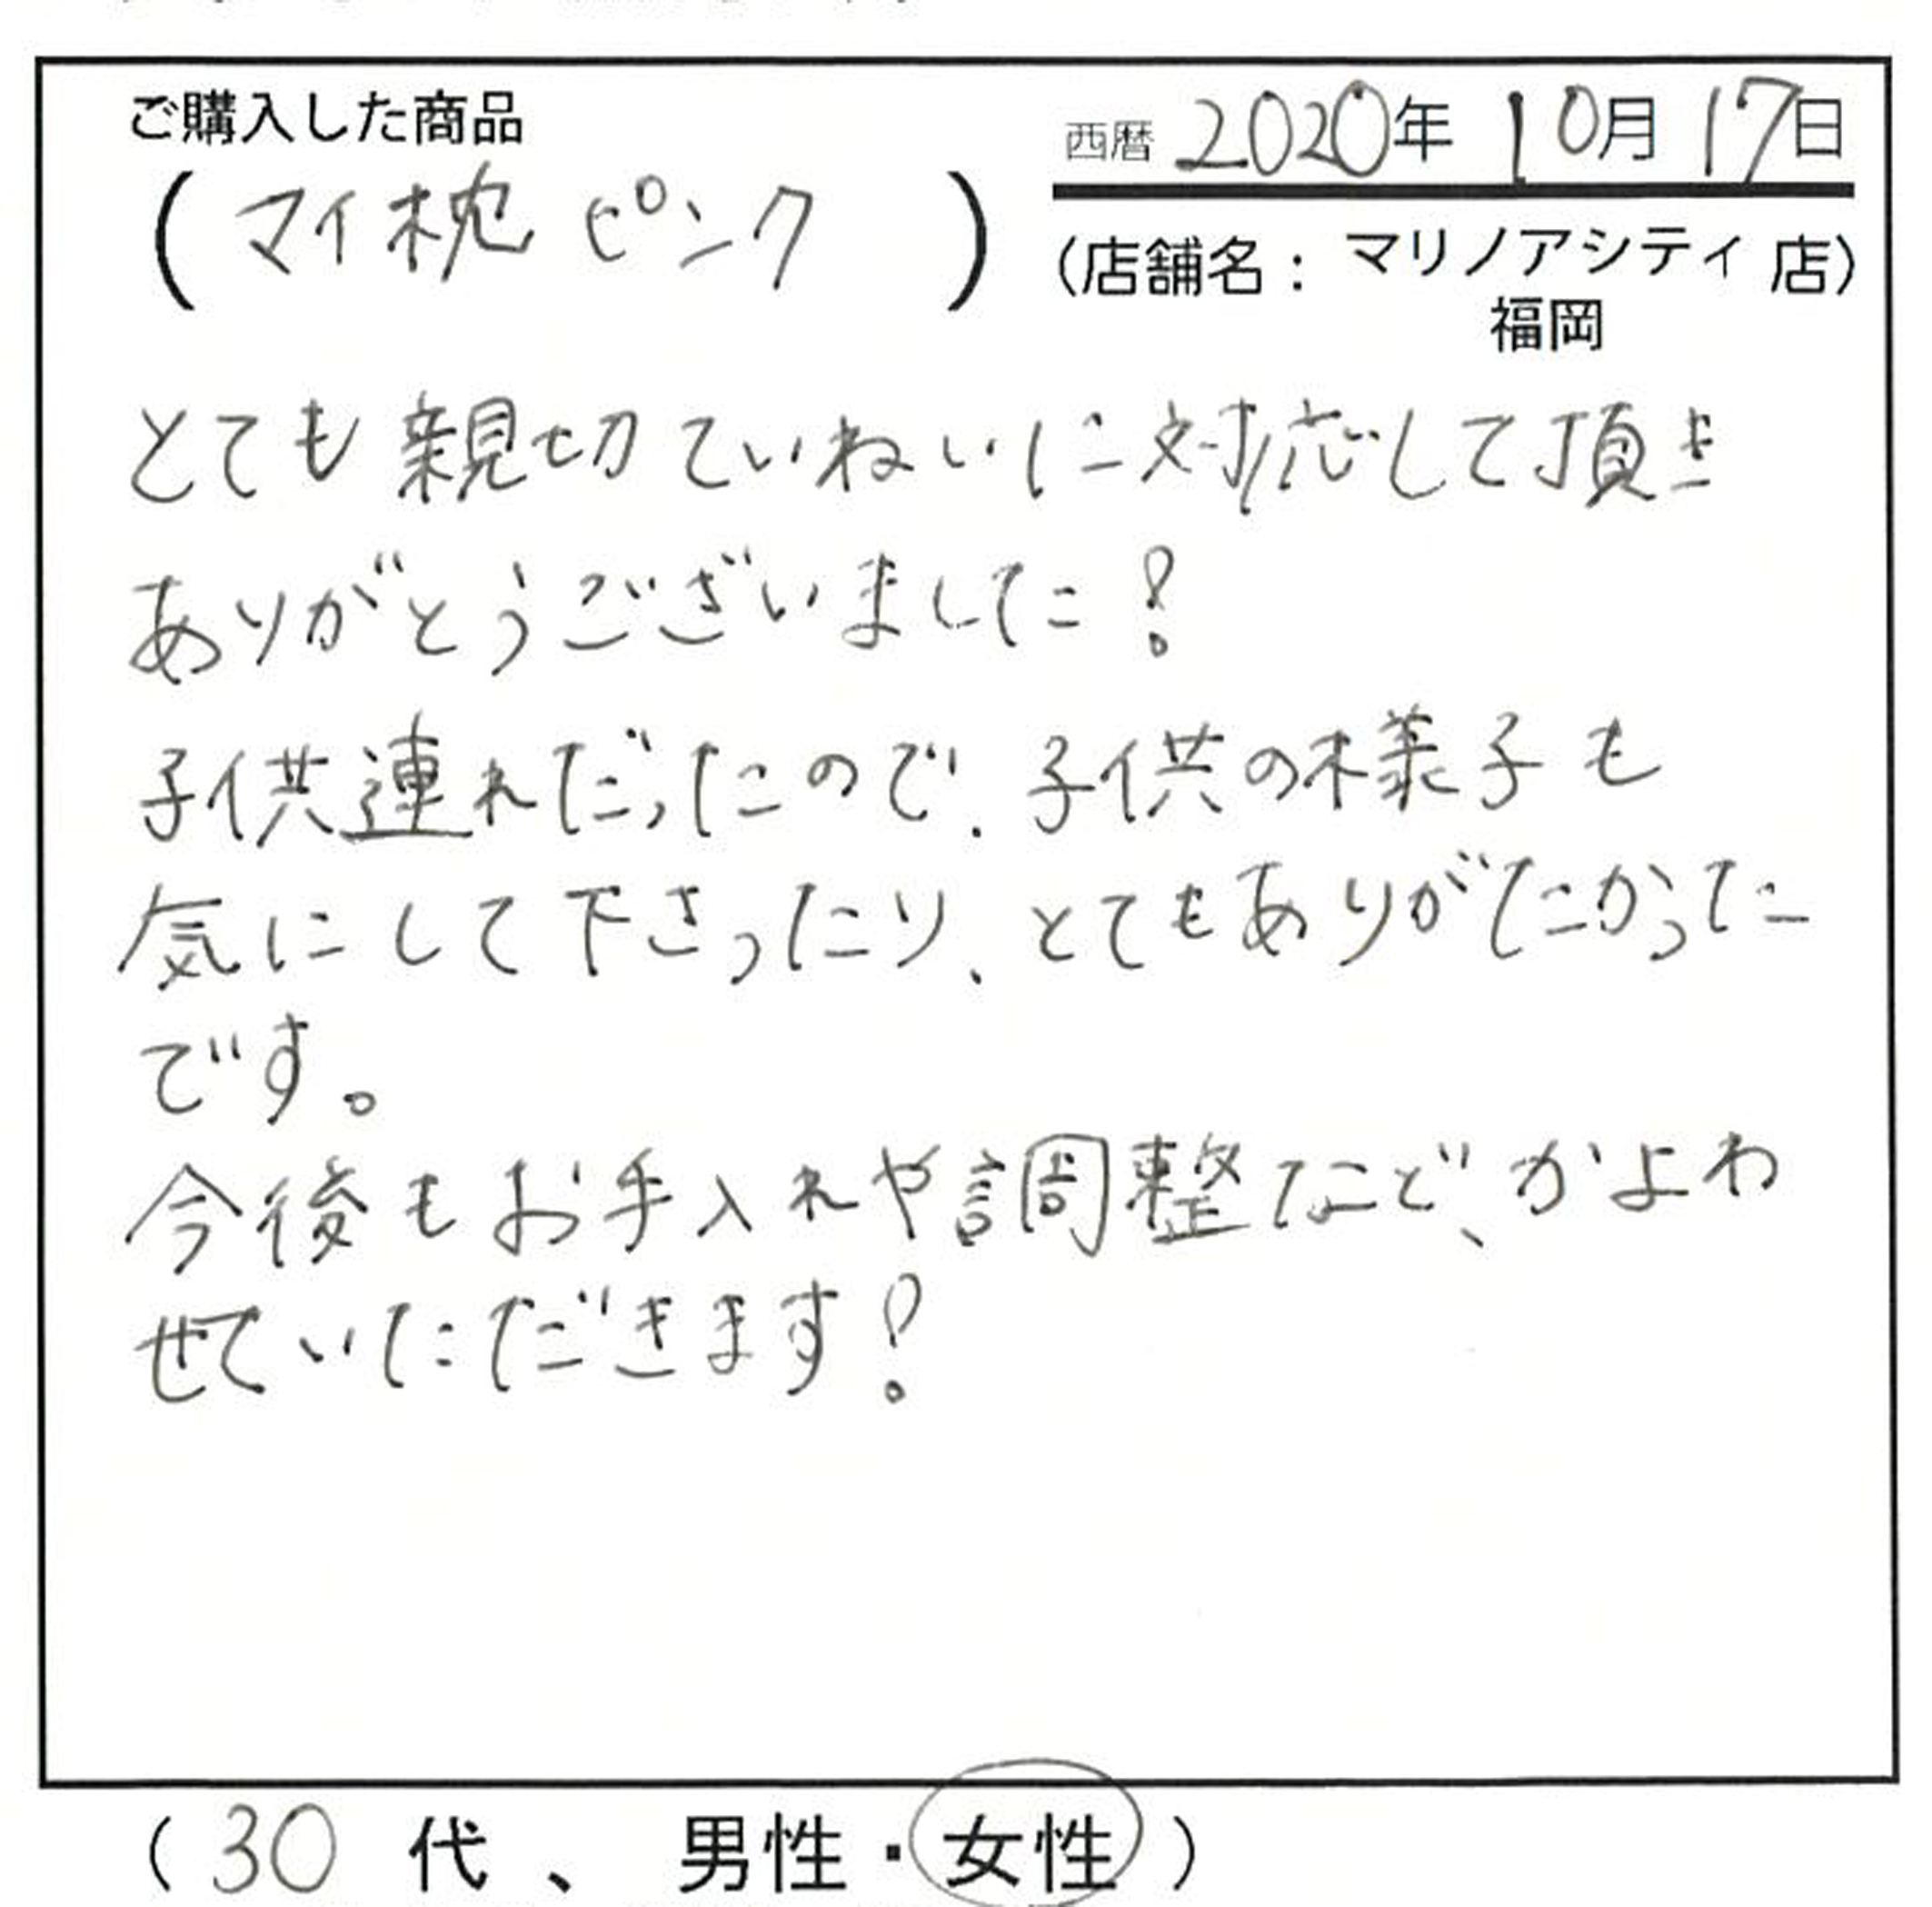 ご購入した商品
西暦 2020年 10月 17日
(マイ枕 ピンク)
(店舗名: マリノアシティ 店)
福岡
とても親切ていねいに対応して頂き
ありがとうございました!
子供連れだったので、子供の様子も
気にして下さったり、とてもありがたかった
です。
今後もお手入れや調整など、かよわ
せていただきます!
(30 代、 男性・女性)